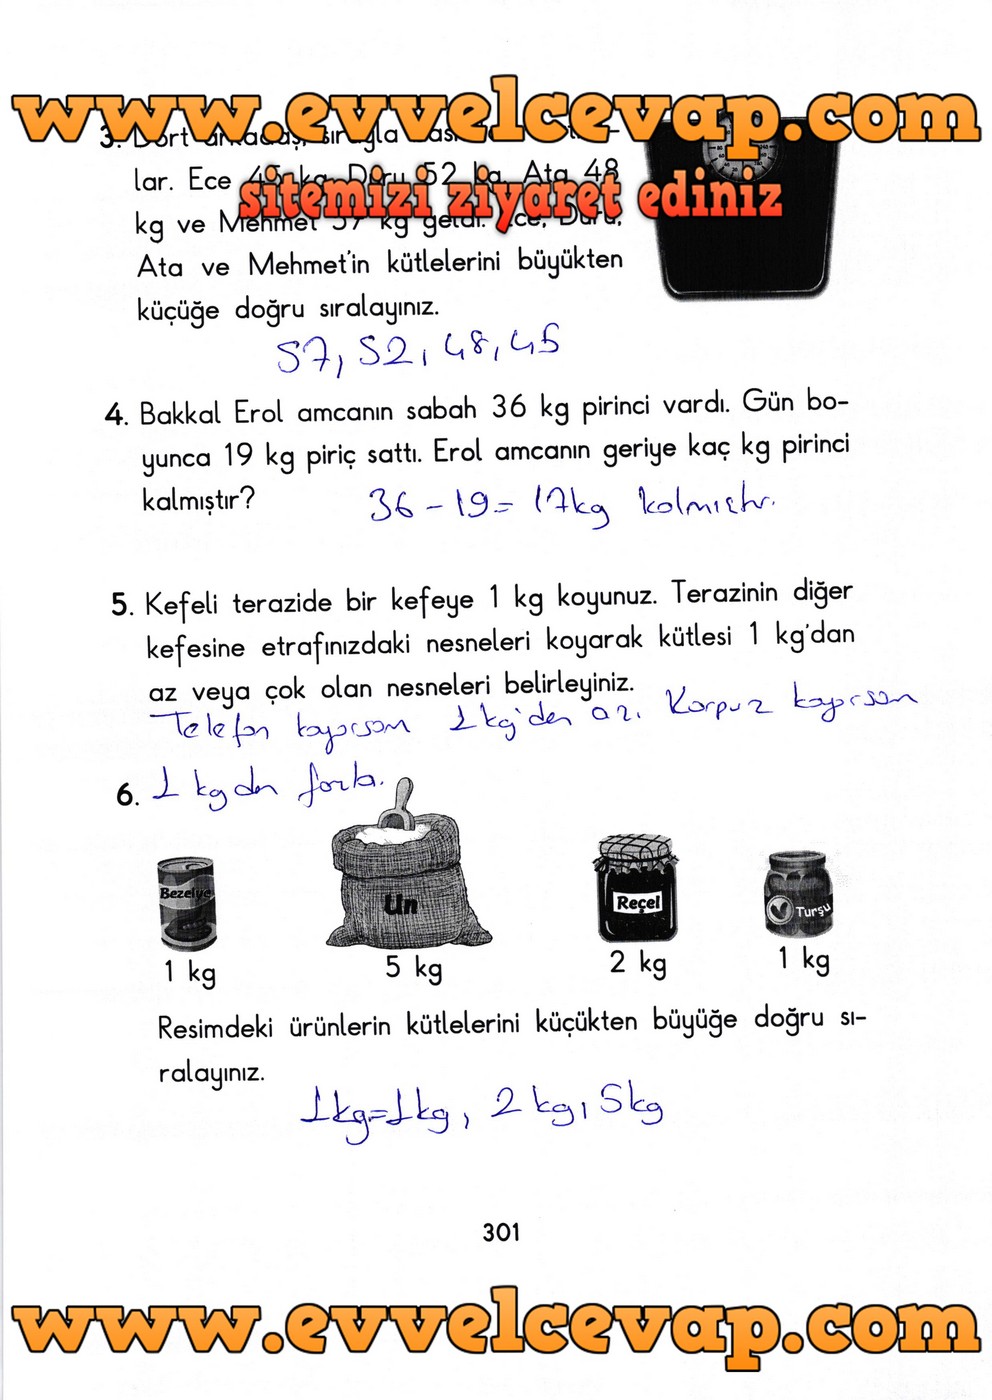 www.evvelcevap.com
3. Dört arkadaş, sırayla
lar. Ece 45 kg, Duru 52 kg, Ata 48
sitemizi ziyaret ediniz
kg ve Mehmet 57 kg geldi. Ece, Duru,
Ata ve Mehmet'in kütlelerini büyükten
küçüğe doğru sıralayınız.
57, 52, 48, 45
4. Bakkal Erol amcanın sabah 36 kg pirinci vardı. Gün bo-
yunca 19 kg piriç sattı. Erol amcanın geriye kaç kg pirinci
kalmıştır?
36 - 19 = 17kg kalmıştır.
5. Kefeli terazide bir kefeye 1 kg koyunuz. Terazinin diğer
kefesine etrafınızdaki nesneleri koyarak kütlesi 1 kg'dan
az veya çok olan nesneleri belirleyiniz.
Telefon koyarsam 1 kg'den az. Karpuz koyarsam
6. 1 kg dan fazla.
Bezelye
Un
Reçel
Turşu
1 kg
5 kg
2 kg
1 kg
Resimdeki ürünlerin kütlelerini küçükten büyüğe doğru sı-
ralayınız.
1kg=1kg, 2 kg, 5kg
301
www.evvelcevap.com